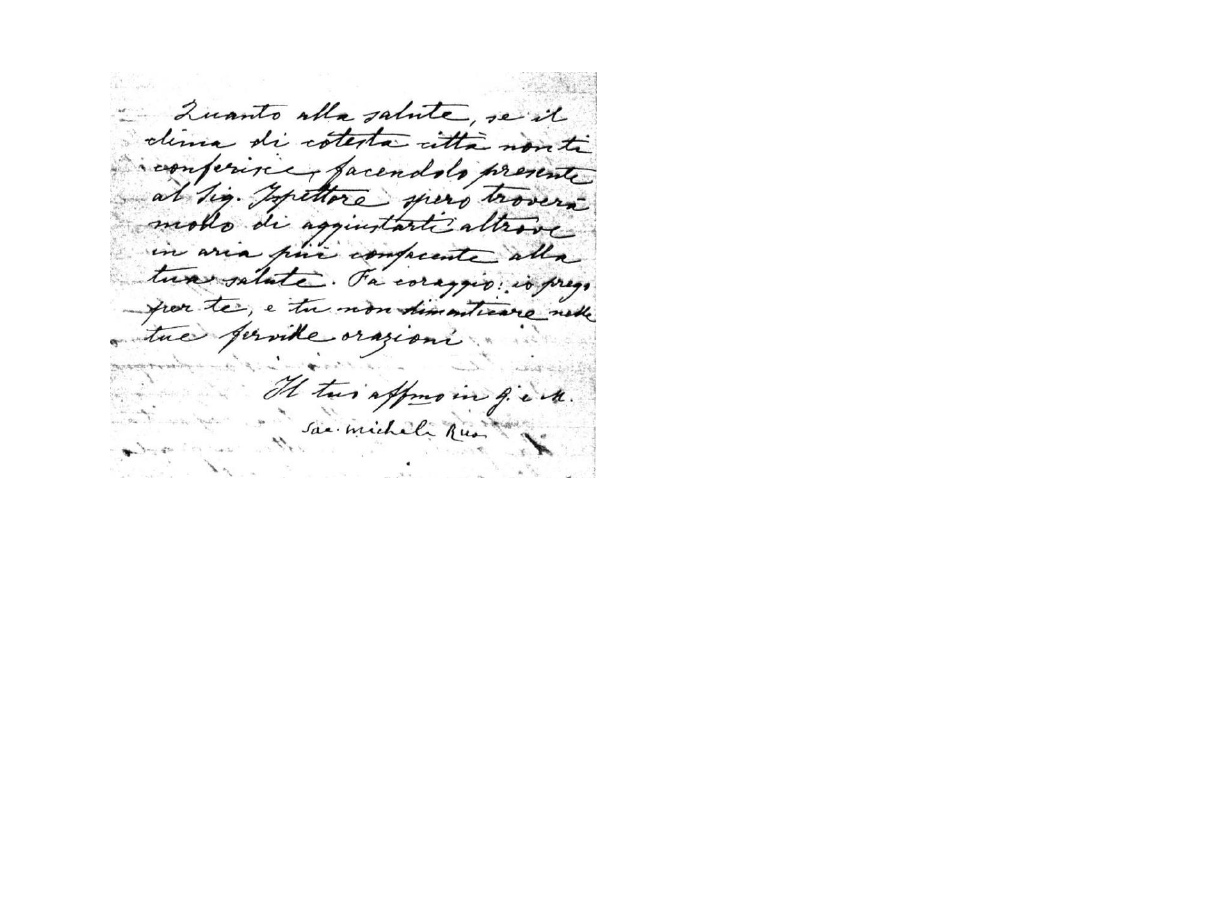 Quanto alla salute, se il
clima di cotesta città non ti
conferisce, facendolo presente
al Sig. Ispettore spero troverà
modo di aggiustarti altrove
in aria più confacente alla
tua salute. Fa coraggio: io prego
per te, e tu non dimenticare nelle
tue fervide orazioni
Il tuo affmo in G. e M.
Sac. Michele Rua